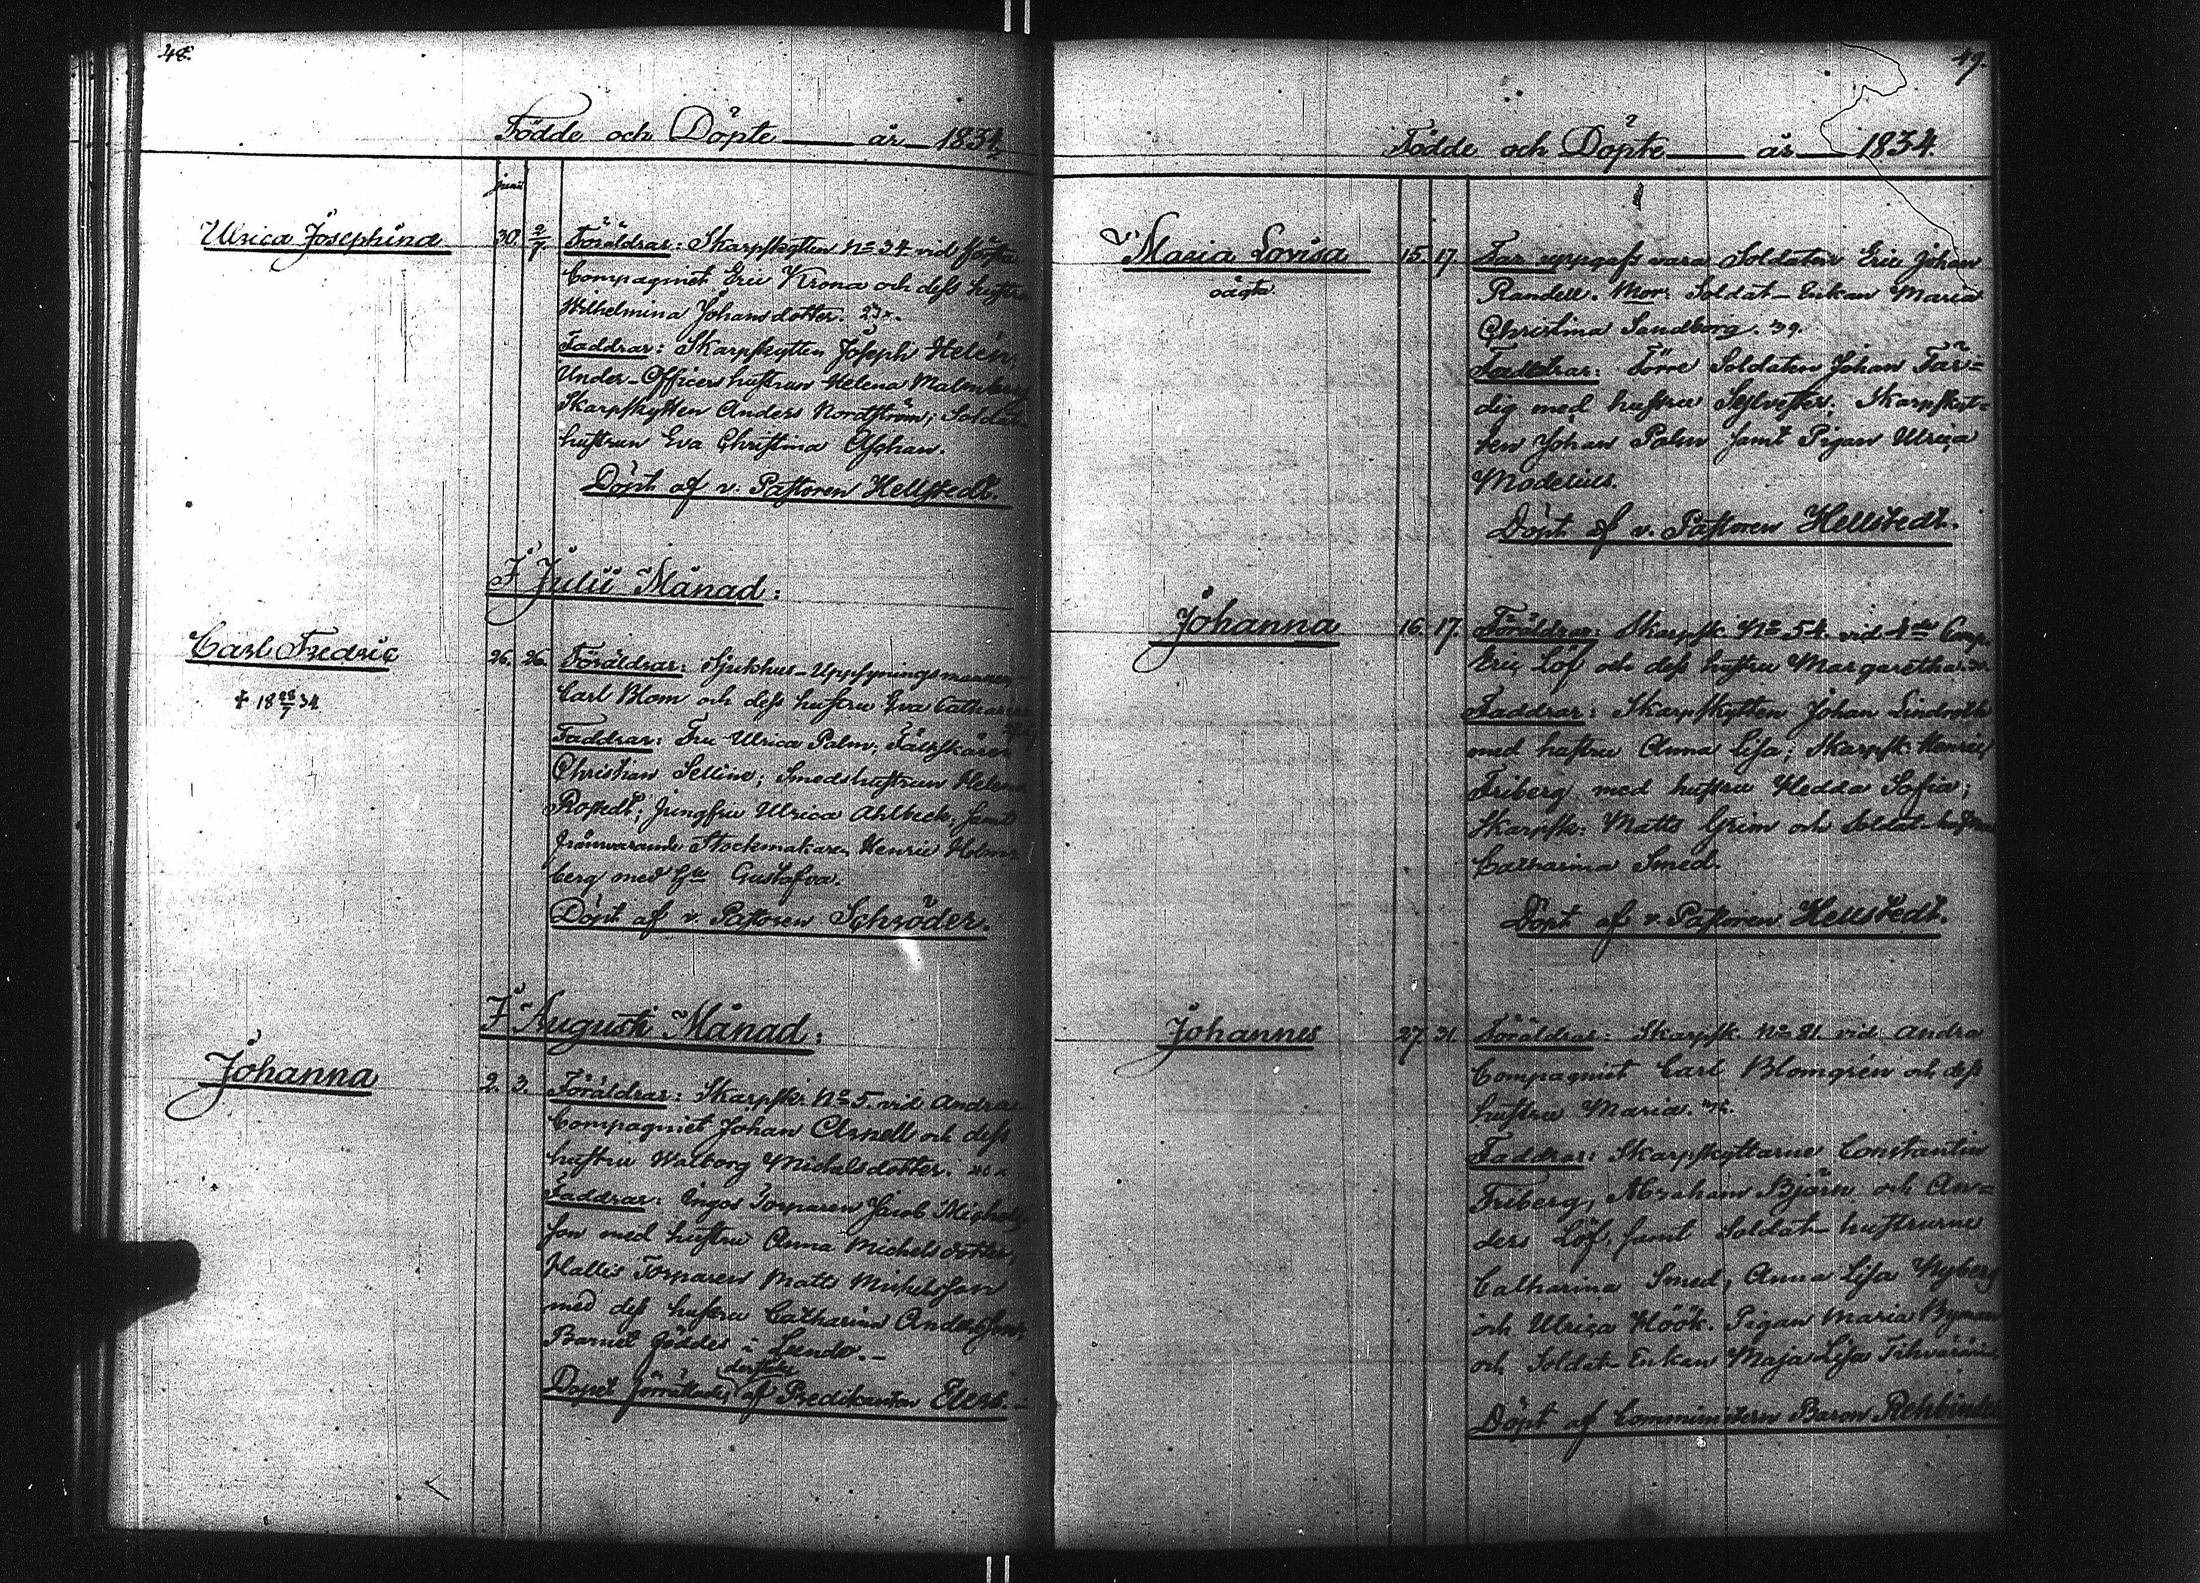 48.
Födde och Döpte — år — 1834.
Junii
Ulrica Josephina 30. 2/7. Föräldrar: Skarpskytten No 34 vid första
Compagniet Eric Krona och dess hustru
Wilhelmina Johansdotter. 23 x.
Faddrar: Skarpskytten Joseph Helén;
Under-Officers hustrun Helena Malmberg
Skarpskytten Anders Nordström; Soldat-
hustrun Eva Christina Aschan.
Döpt af v. Pastoren Hellstedt.
I Julii Månad:
Carl Fredric 26. 26. Föräldrar: Sjukhus-Uppsyningsmannen
Carl Blom och dess hustru Eva Catharina
† 18 28/7 34.
Faddrar: Fru Ulrica Palm; Fältskären
Christian Selline; Smedshustrun Helena
Rostedt; Jungfru Ulrica Ahlbeck, samt
frånvarande Stockmakaren Henric Holm-
berg med Hu Gustafva.
Döpt af v. Pastoren Schröder.
I Augusti Månad:
Johanna 2. 3. Föräldrar: Skarpsk: No 5. vid Andra
Compagniet Johan Arnell och dess
hustru Walborg Michelsdotter.
Faddrar: Ingos Torparen Jacob Michels-
son med hustru Anna Michelsdotter,
Hallis Torparen Matts Michelsson
med dess hustru Catharina Andersson;
Barnet föddes i Lundo.—
derstädes
Dopet förrättades af Predikanten Elers.—
49.
Födde och Döpte — år — 1834.
Maria Lovisa 15. 17. Far uppgafs vara Soldaten Eric Johan
oägta.
Randell. Mor: Soldat-Enkan Maria
Christina Sandborg. 39.
Faddrar: Förre Soldaten Johan Fär=
dig med hustru Sylvester; Skarpskyt=
ten Johan Palm samt Pigan Ulrica
Moderus.
Döpt af v. Pastoren Hellstedt.
Johanna 16. 17. Föräldrar: Skarpsk. No 54. vid 4de Comp.
Eric Löf och dess hustru Margaretha.
Faddrar: Skarpskytten Johan Lindroth
med hustru Anna Lisa; Skarpsk: Henric
Friberg med hustru Hedda Sofia;
Skarpsk: Matts Grim och Soldat-hustrun
Catharina Smed.
Döpt af v. Pastoren Hellstedt.
Johannes 27. 31. Föräldrar: Skarpsk. No 81. vid Andra
Compagniet Carl Blomgrén och dess
hustru Maria.
Faddrar: Skarpskyttarne Constantin
Friberg, Abraham Björn och An=
ders Löf, samt Soldat-hustrurne
Catharina Smed, Anna Lisa Nyberg
och Ulrica Höök. Pigan Maria Byman
och Soldat Enkan Maja Lisa
Döpt af Comministern Baron Rehbinder